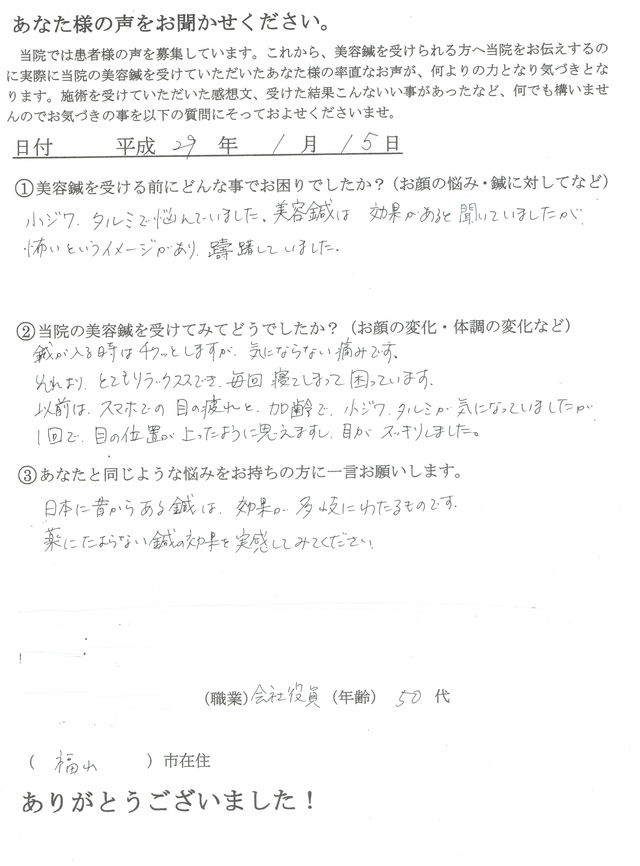 あなた様の声をお聞かせください。
当院では患者様の声を募集しています。これから、美容鍼を受けられる方へ当院をお伝えするの
に実際に当院の美容鍼を受けていただいたあなた様の率直なお声が、何よりの力となり気づきとな
ります。施術を受けていただいた感想文、受けた結果こんないい事があったなど、何でも構いませ
んのでお気づきの事を以下の質問にそっておよせくださいませ。
日付 平成 29 年 1 月 15 日
①美容鍼を受ける前にどんな事でお困りでしたか？（お顔の悩み・鍼に対してなど）
小ジワ、タルミで悩んでいました。美容鍼は 効果があると聞いていましたが
怖いというイメージがあり、躊躇していました。
②当院の美容鍼を受けてみてどうでしたか？（お顔の変化・体調の変化など）
鍼が入る時はチクッとしますが、気にならない痛みです。
それより、とてもリラックスでき、毎回 寝てしまって困っています。
以前は、スマホでの目の疲れと、加齢で、小ジワ、タルミが気になっていましたが
1回で、目の位置が上ったように思えますし、目がスッキリしました。
③あなたと同じような悩みをお持ちの方に一言お願いします。
日本に昔からある鍼は、効果が多岐にわたるものです。
薬にたよらない鍼の効果を実感してみてください。
（職業）会社役員（年齢） 50 代
（ 福山 ）市在住
ありがとうございました！